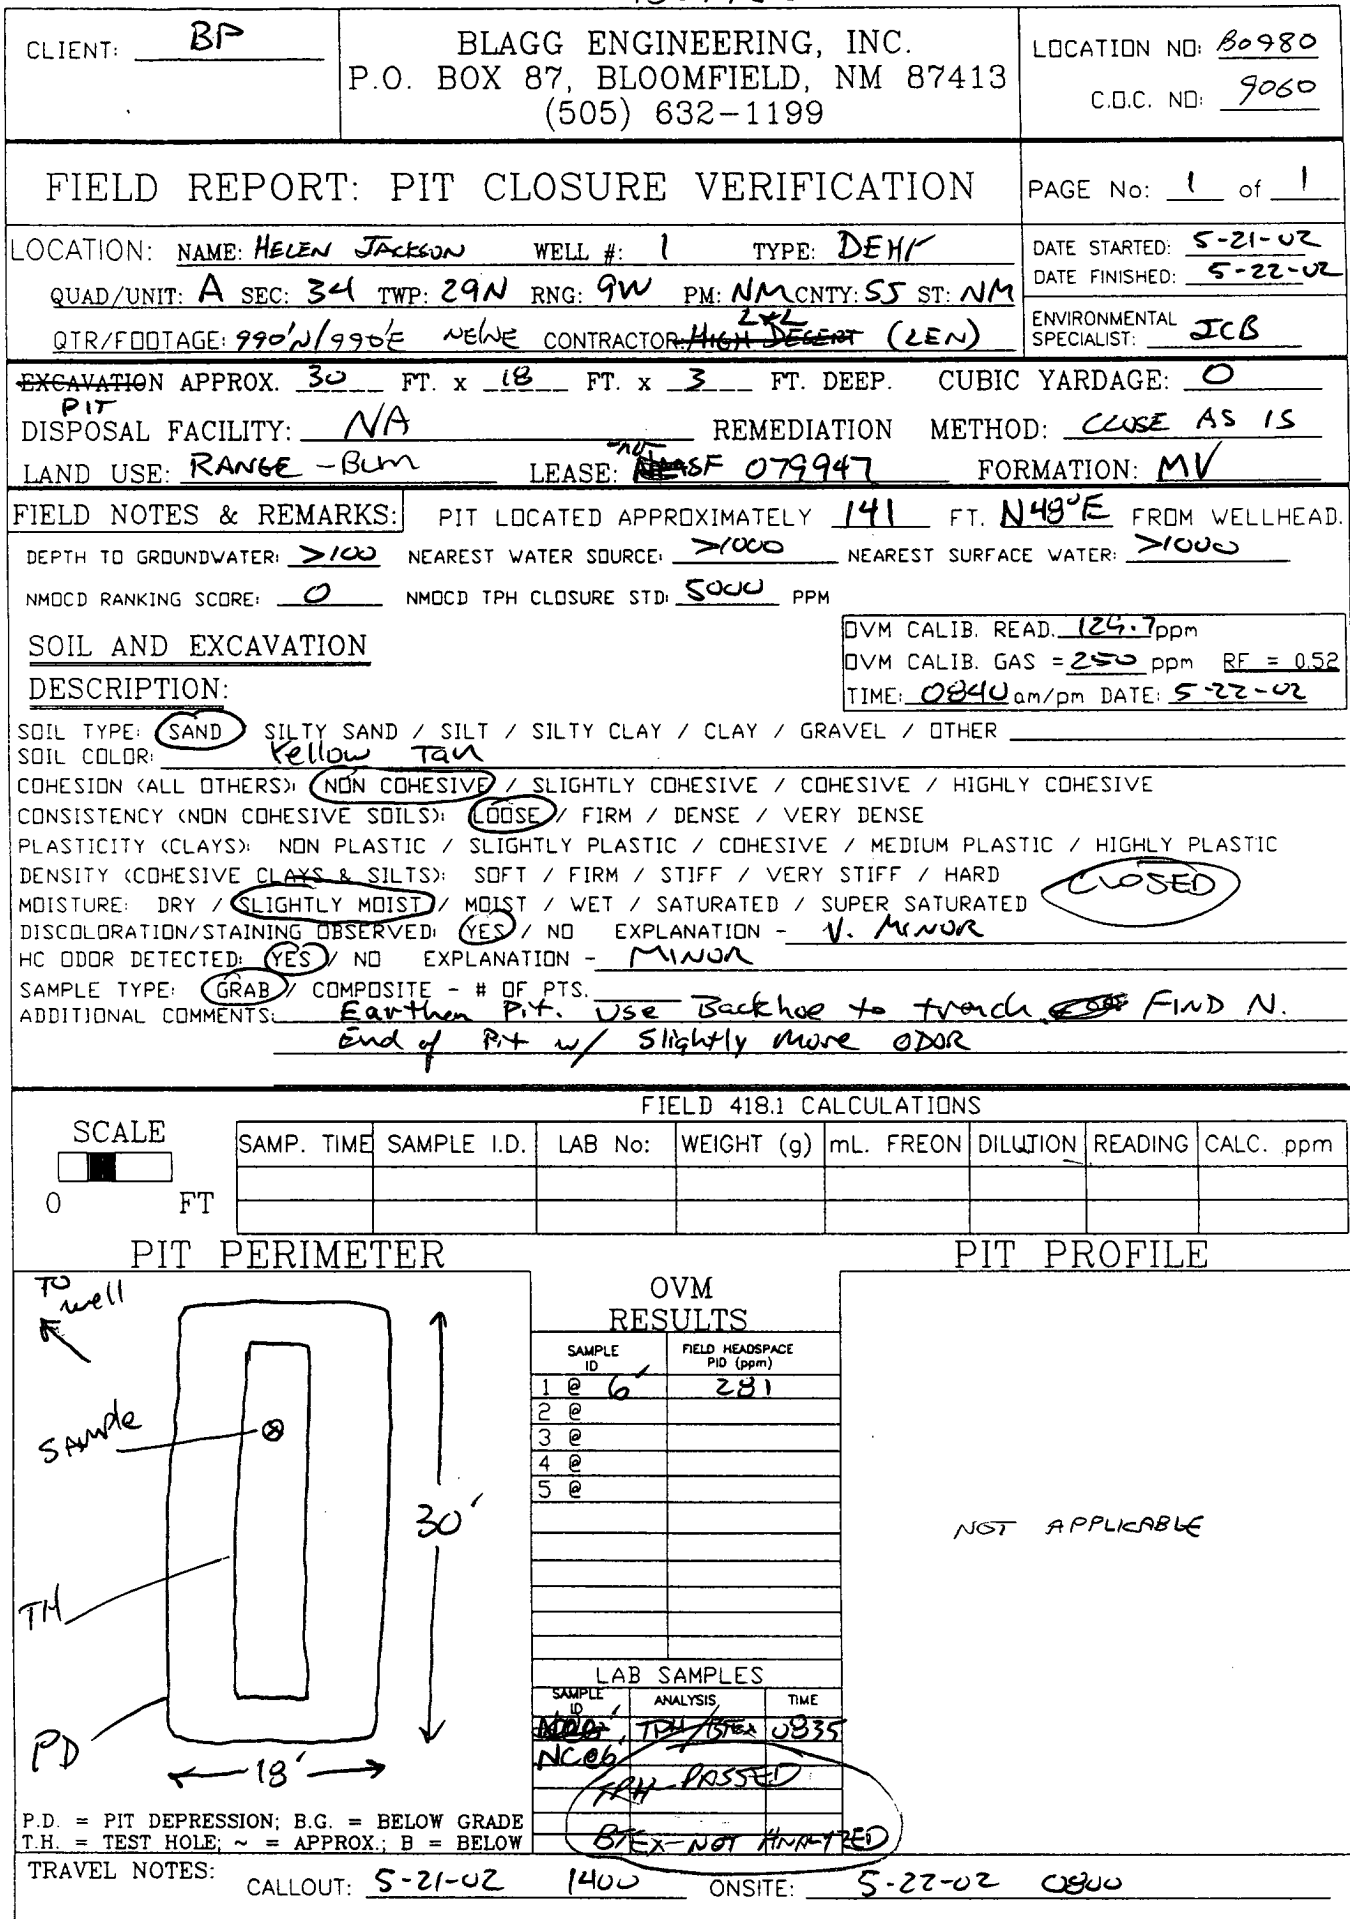 CLIENT: BP
BLAGG ENGINEERING, INC.
P.O. BOX 87, BLOOMFIELD, NM 87413
(505) 632-1199
LOCATION NO: B0980
C.O.C. NO: 9060
FIELD REPORT: PIT CLOSURE VERIFICATION
PAGE No: 1 of 1
LOCATION: NAME: HELEN JACKSON WELL #: 1 TYPE: DEHY
QUAD/UNIT: A SEC: 34 TWP: 29N RNG: 9W PM: NM CNTY: SJ ST: NM
QTR/FOOTAGE: 990'N/990'E NE/NE CONTRACTOR: HIGH DESERT L&L (LEN)
DATE STARTED: 5-21-02
DATE FINISHED: 5-22-02
ENVIRONMENTAL
SPECIALIST: JCB
EXCAVATION APPROX. 30 FT. x 18 FT. x 3 FT. DEEP. CUBIC YARDAGE: 0
PIT
DISPOSAL FACILITY: NA REMEDIATION METHOD: CLOSE AS IS
LAND USE: RANGE - BLM LEASE: SF 079947 FORMATION: MV
FIELD NOTES & REMARKS: PIT LOCATED APPROXIMATELY 141 FT. N48°E FROM WELLHEAD.
DEPTH TO GROUNDWATER: >100 NEAREST WATER SOURCE: >1000 NEAREST SURFACE WATER: >1000
NMOCD RANKING SCORE: 0 NMOCD TPH CLOSURE STD: 5000 PPM
SOIL AND EXCAVATION
DESCRIPTION:
OVM CALIB. READ. 129.7 ppm
OVM CALIB. GAS = 250 ppm RF = 0.52
TIME: 0840 am/pm DATE: 5-22-02
SOIL TYPE: SAND SILTY SAND / SILT / SILTY CLAY / CLAY / GRAVEL / OTHER
SOIL COLOR: Yellow Tan
COHESION (ALL OTHERS): NON COHESIVE / SLIGHTLY COHESIVE / COHESIVE / HIGHLY COHESIVE
CONSISTENCY (NON COHESIVE SOILS): LOOSE / FIRM / DENSE / VERY DENSE
PLASTICITY (CLAYS): NON PLASTIC / SLIGHTLY PLASTIC / COHESIVE / MEDIUM PLASTIC / HIGHLY PLASTIC
DENSITY (COHESIVE CLAYS & SILTS): SOFT / FIRM / STIFF / VERY STIFF / HARD
CLOSED
MOISTURE: DRY / SLIGHTLY MOIST / MOIST / WET / SATURATED / SUPER SATURATED
DISCOLORATION/STAINING OBSERVED: YES / NO EXPLANATION - V. MINOR
HC ODOR DETECTED: YES / NO EXPLANATION - MINOR
SAMPLE TYPE: GRAB / COMPOSITE - # OF PTS.
ADDITIONAL COMMENTS: Earthen Pit. Use Backhoe to trench FIND N.
End of Pit w/ Slightly More ODOR
FIELD 418.1 CALCULATIONS
SCALE
0 FT
SAMP. TIME SAMPLE I.D. LAB No: WEIGHT (g) mL. FREON DILUTION READING CALC. ppm
PIT PERIMETER
PIT PROFILE
TO well
SAMPLE
TH
PD
30'
18'
P.D. = PIT DEPRESSION; B.G. = BELOW GRADE
T.H. = TEST HOLE; ~ = APPROX.; B = BELOW
OVM
RESULTS
SAMPLE ID FIELD HEADSPACE PID (ppm)
1 @ 6' 281
2 @
3 @
4 @
5 @
LAB SAMPLES
SAMPLE ID ANALYSIS TIME
TPH/BTEX 0835
NC@6'
TPH-PASSED
BTEX-NOT ANALYZED
NOT APPLICABLE
TRAVEL NOTES: CALLOUT: 5-21-02 1400 ONSITE: 5-22-02 0800